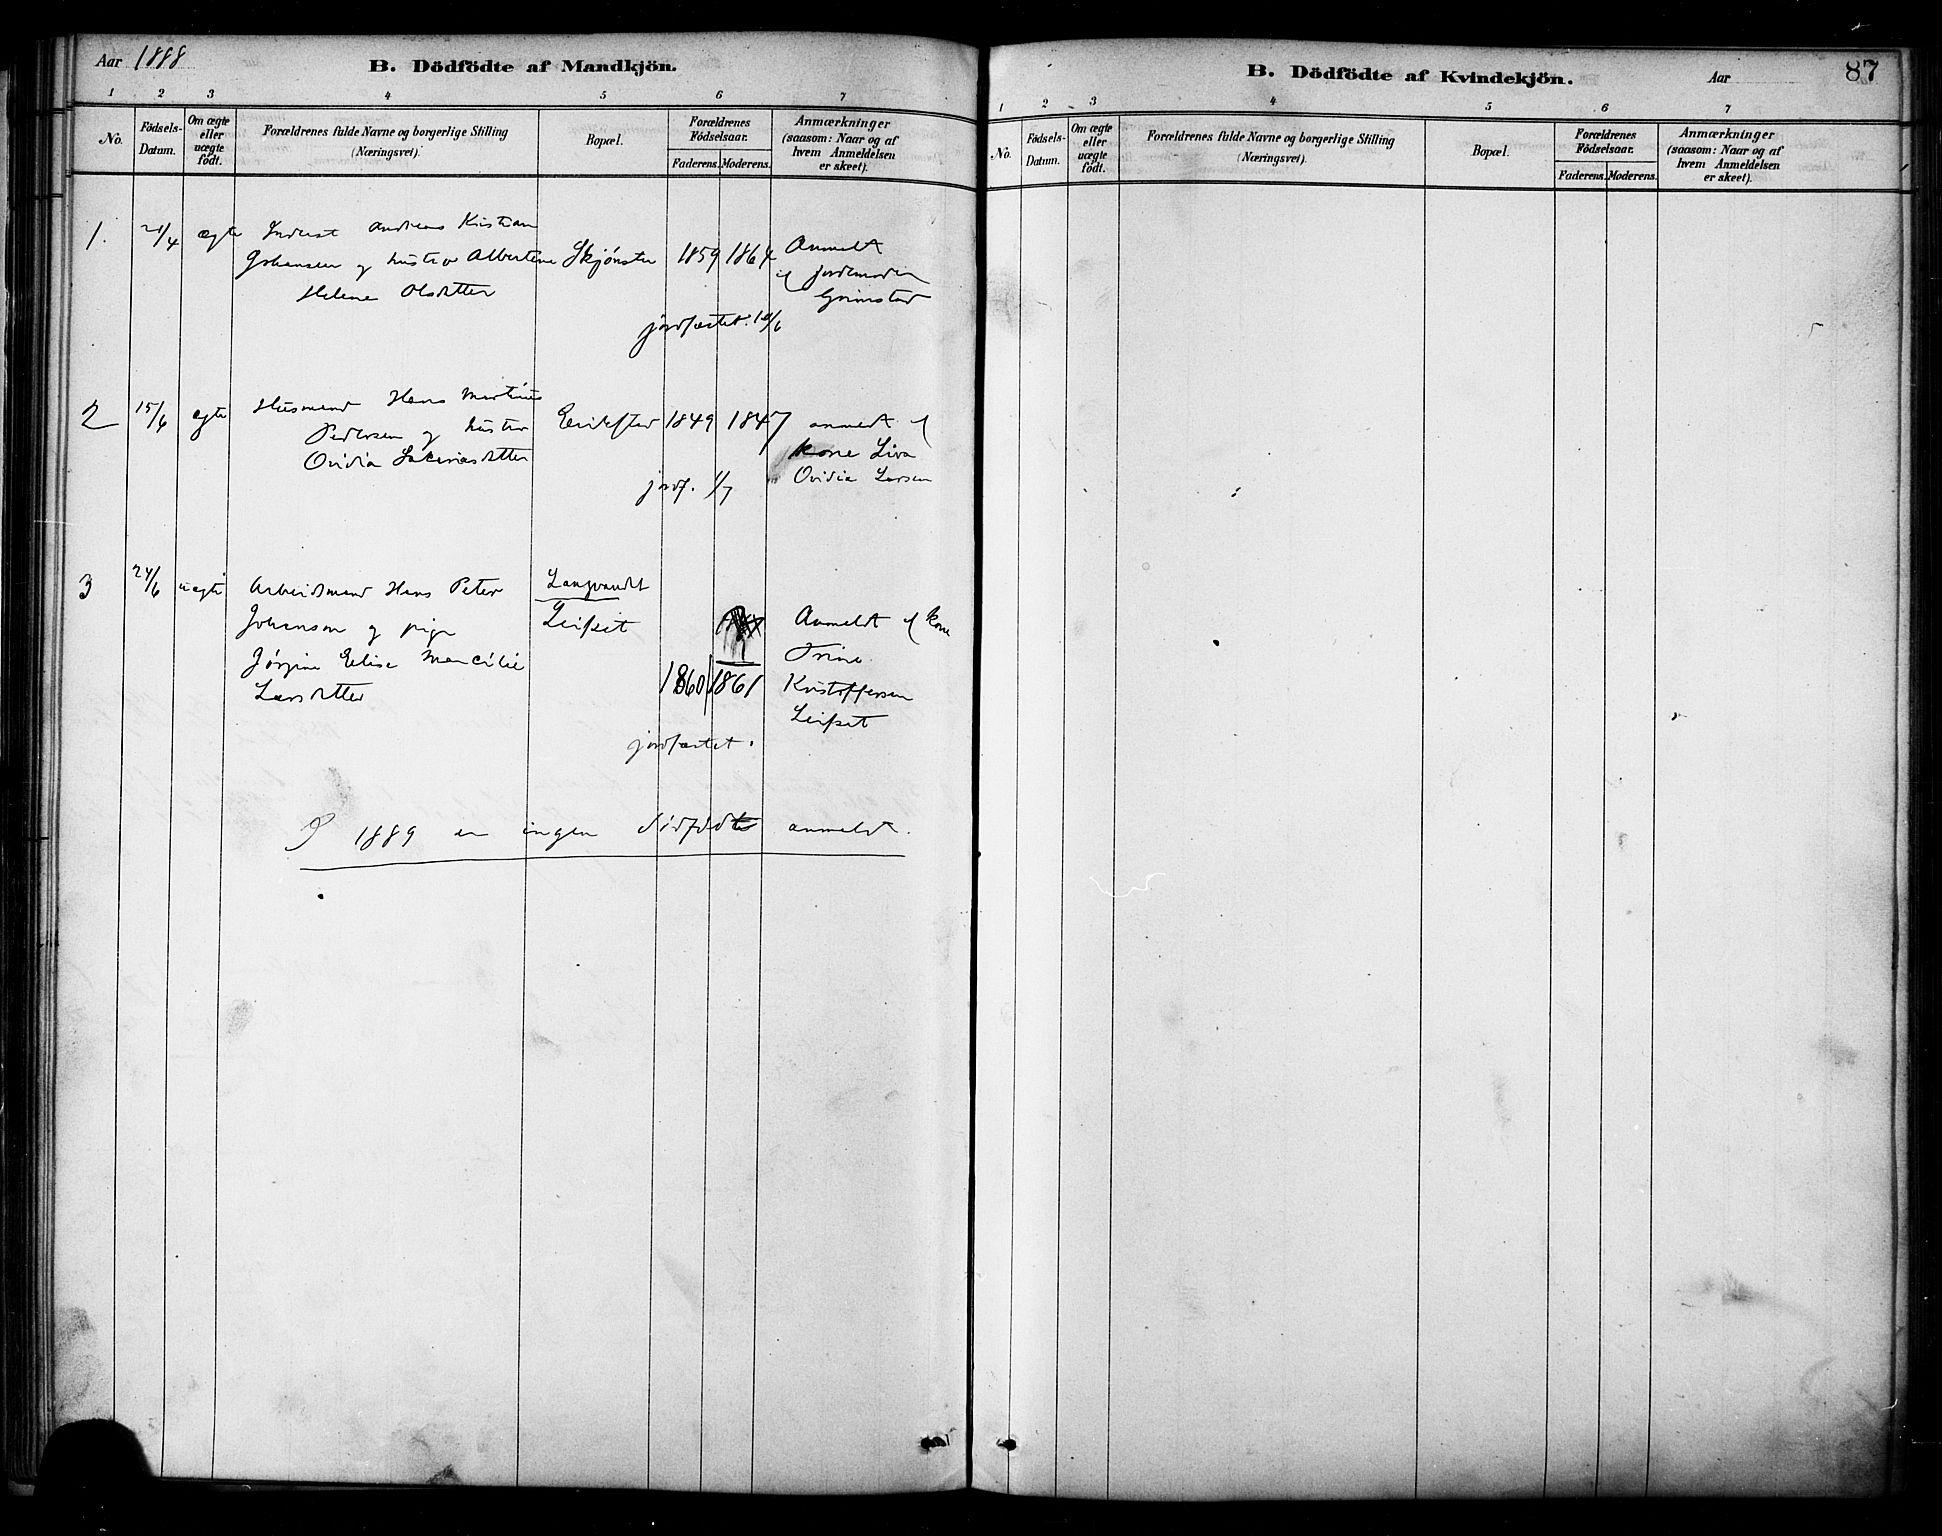 Aar 1888
B. Dödfödte af Mandkjön.
1 2 3 4 5 6 7
No.
Födsels-Datum.
Om ægte eller uægte födt.
Forældrenes fulde Navne og borgerlige Stilling (Næringsvei).
Bopæl.
Forældrenes Födselsaar.
Faderens. Moderens.
Anmærkninger (saasom: Naar og af hvem Anmeldelsen er skeet).
1. 21/4 ægte Inderst Andreas Kristian
Johansen og hustro Albertine Skjønsta 1859 1864 Anmeldt
Helene Olsdatter
af jordemoder
Grimstad
jordfæstet. 10/6
2 15/6 ægte Husmand Hans Martinus
Pedersen og hustro Erikstad 1849 1847 anmeldt af
Ovidia Sakariasdatter
kone Liva
Ovidia Larsen
jordf. 1/7
3 24/6 uægte Arbeidsmand Hans Peter Langvandet
Johansen og pige Leifset Anmeldt af kone
Jörgine Elise
Larsdatter
1860 1861
Trine
Kristoffersen
Leifset
jordfæstet.
I 1889 er ingen dödfödte anmeldt.
B. Dödfödte af Kvindekjön.
Aar
87
1 2 3 4 5 6 7
No.
Födsels-Datum.
Om ægte eller uægte födt.
Forældrenes fulde Navne og borgerlige Stilling (Næringsvei).
Bopæl.
Forældrenes Födselsaar.
Faderens. Moderens.
Anmærkninger (saasom: Naar og af hvem Anmeldelsen er skeet).